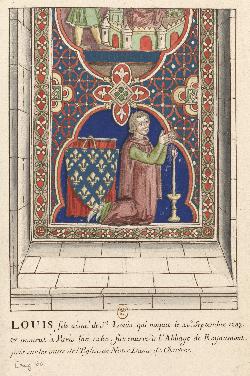 LOUIS fils aîné de St. Louis qui naquit le 21e. Septembre 1243.
et mourut à Paris fut enterré à l'Abbaye de Royaumont.
peint sur les vitres de l'Eglise de Notre Dame de Chartres.